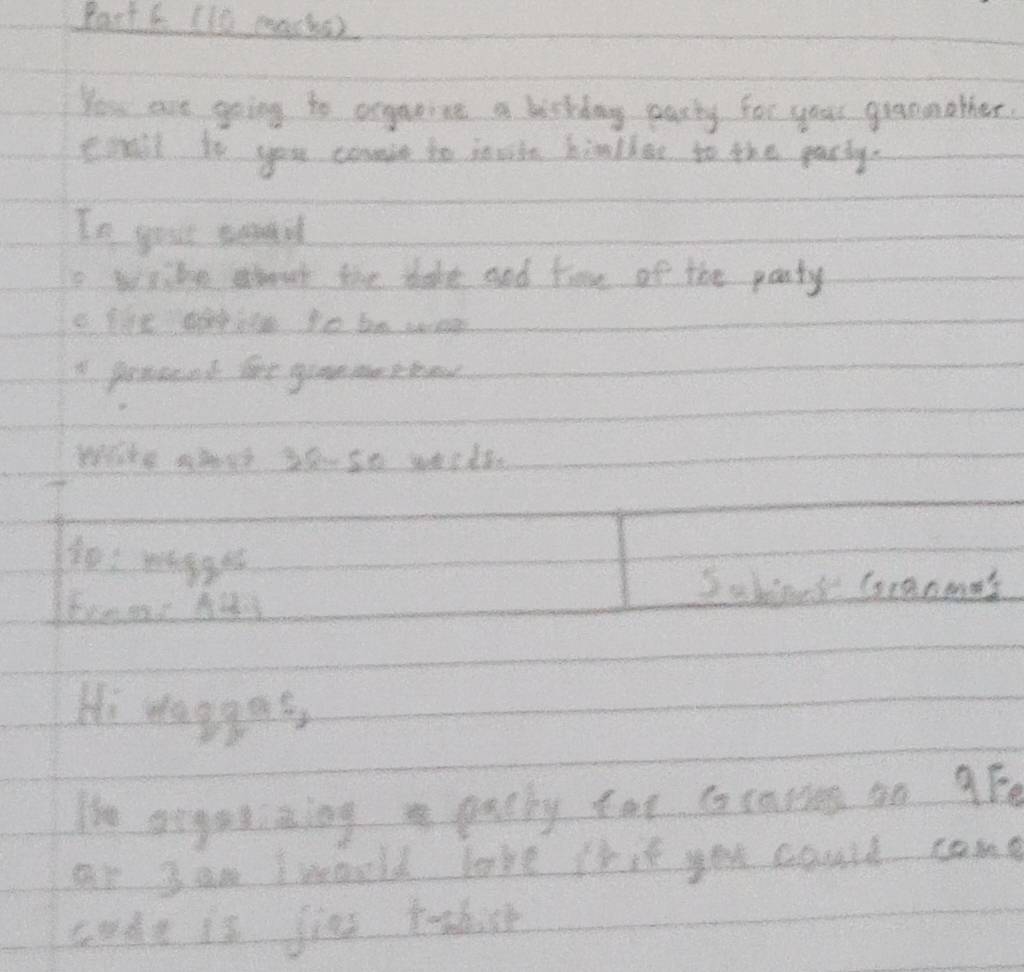 Part 6 (10 marks)
You are going to organize a birthday party for your granmother.
email to you to invite him/her to the party.
In your email
write about the date and time of the party
the to be
present for
Write about 50 words.
to: waqqas
From:
Subject: Granma's
Hi waqqas,
I'm organizing a party for Granma on 9 Fe
at 3 I would love it if you could come
code is t-shirt